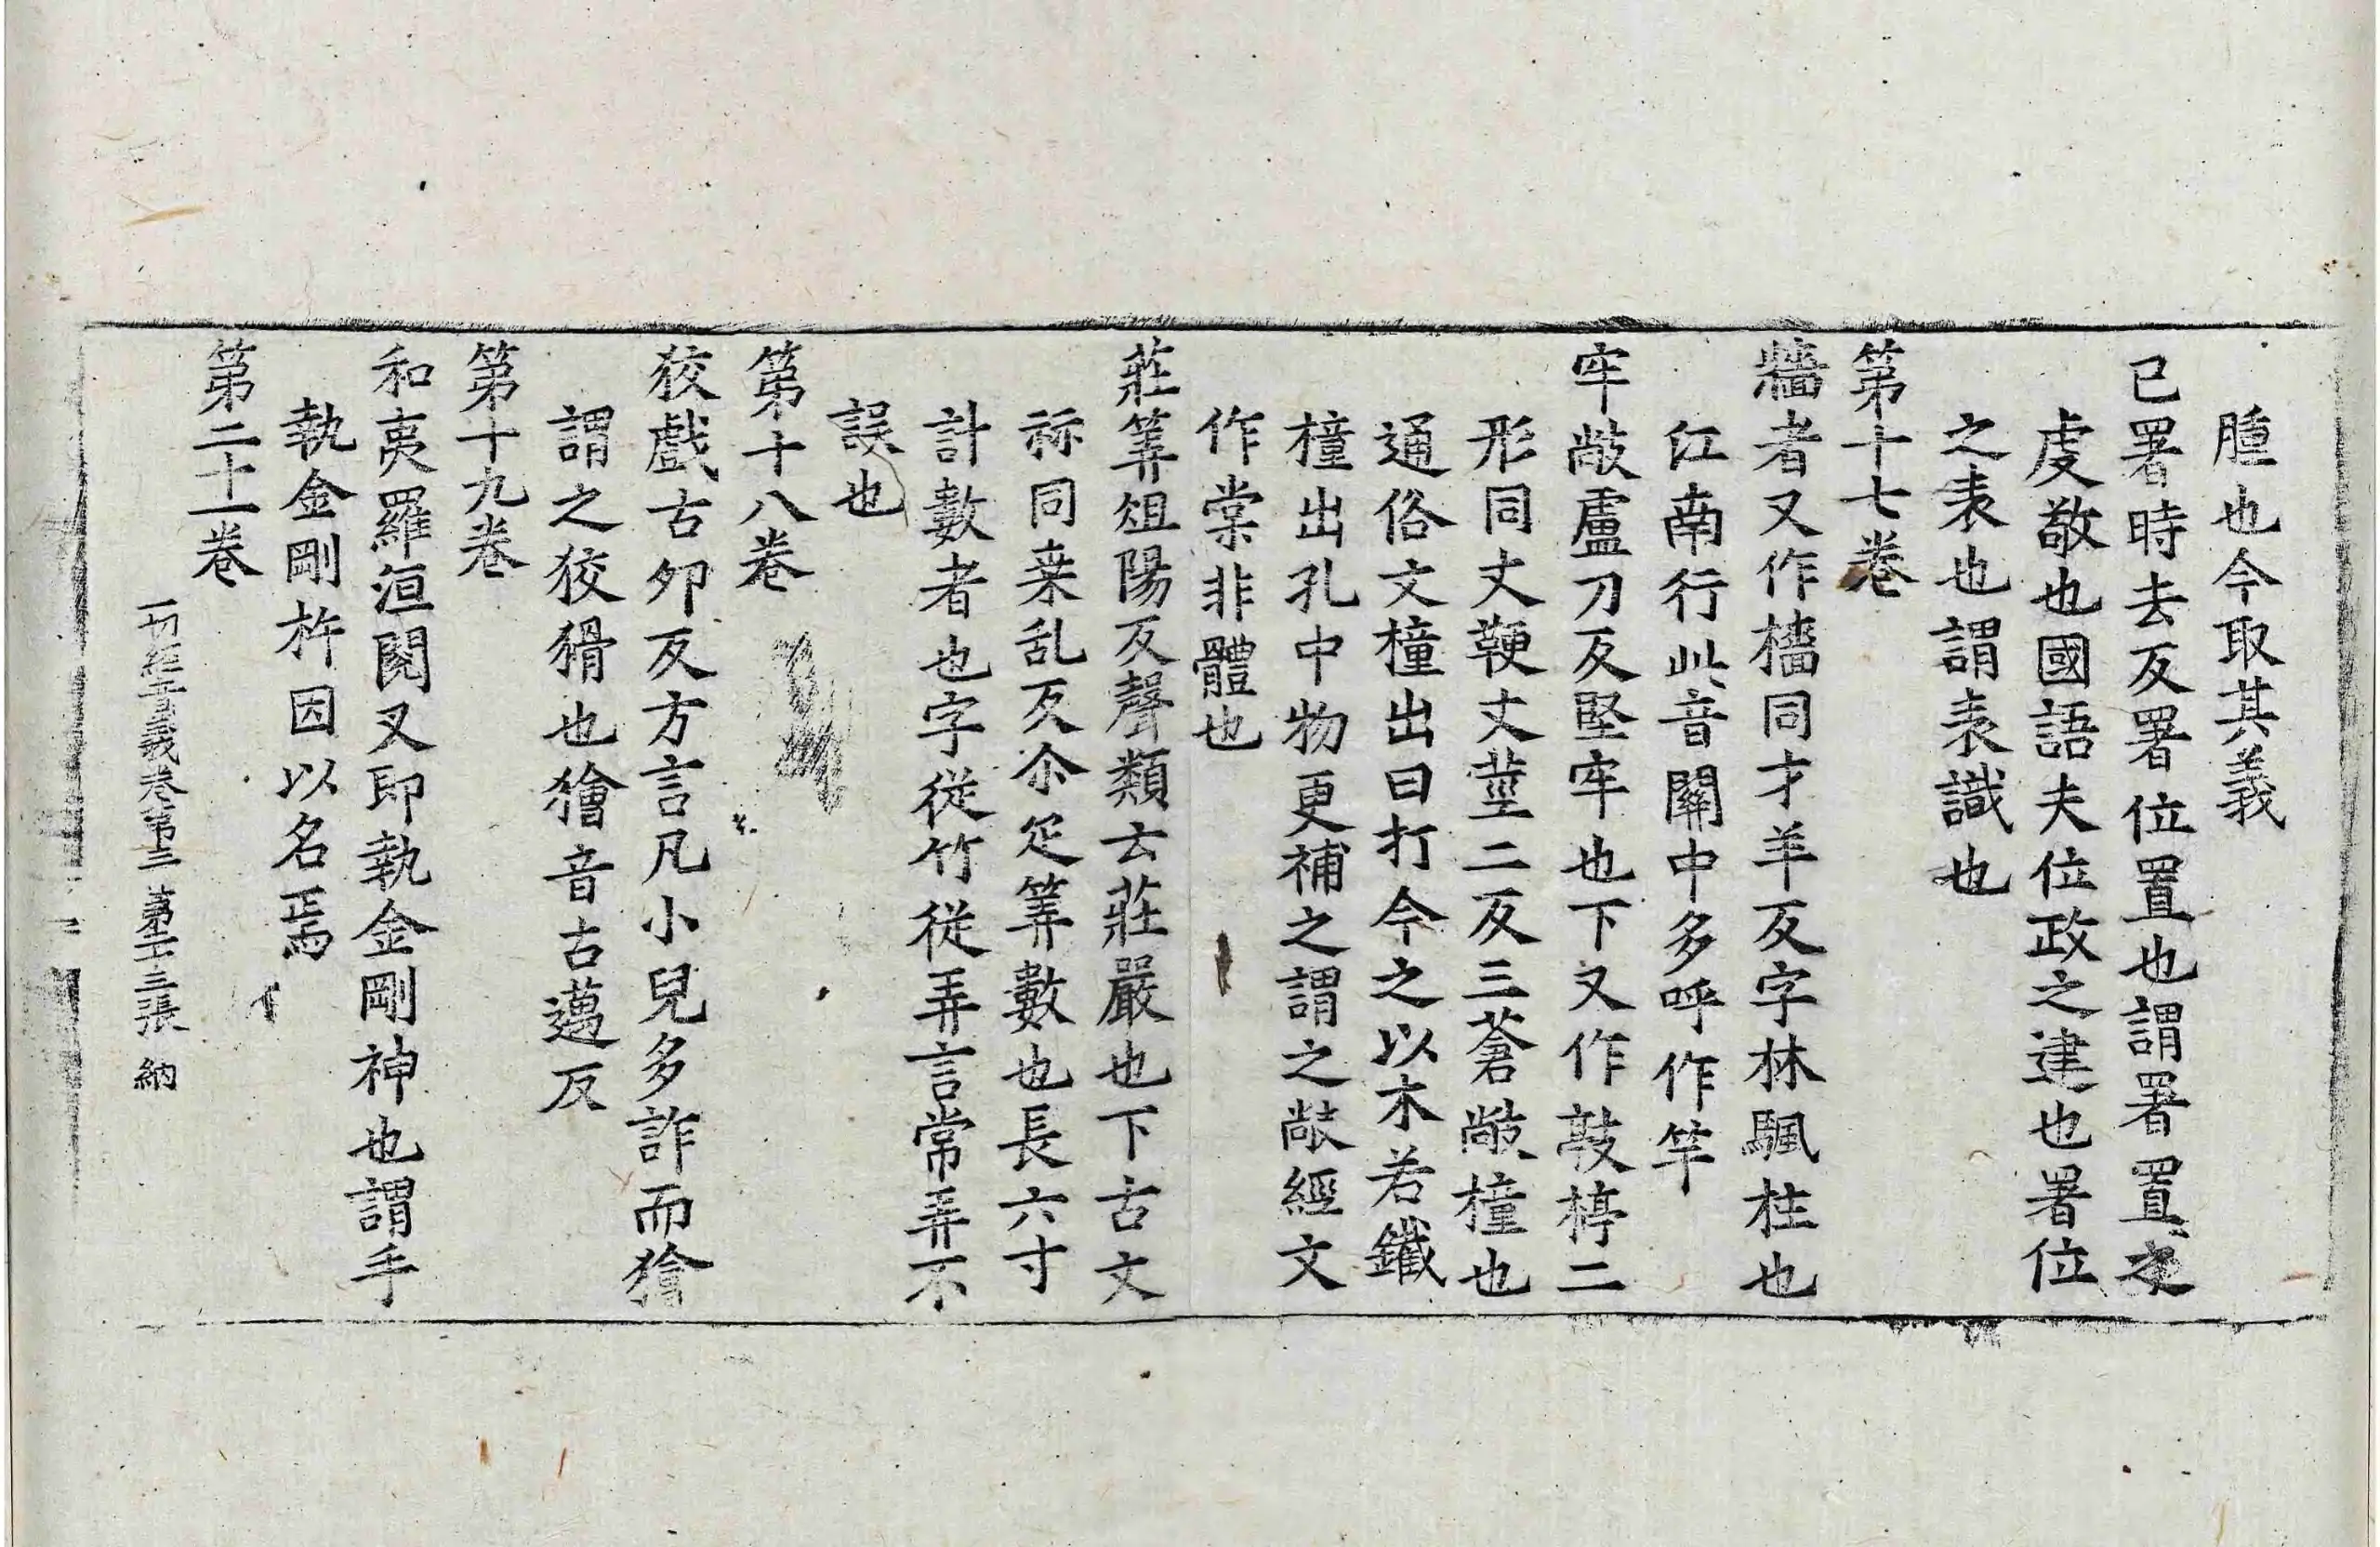 腫也今取其義
已署時去反署位置也謂署置之
虔敬也國語夫位政之建也署位
之表也謂表識也
第十七卷
牆者又作檣同才羊反字林颿柱也
江南行此音關中多呼作竿
牢敞盧刀反堅牢也下又作敼㯑二
形同丈鞕丈莖二反三蒼敞橦也
通俗文橦出曰打今之以木若鐵
橦出孔中物更補之謂之敞經文
作棠非體也
莊筭俎陽反聲類云莊嚴也下古文
祘同桒乱反尒疋筭數也長六寸
計數者也字從竹從弄言常弄不
誤也
第十八卷
狡戲古夘反方言凡小兒多詐而獪
謂之狡猾也獪音古邁反
第十九卷
和夷羅洹閱叉即執金剛神也謂手
執金剛杵因以名焉
第二十一卷
一切經音義卷第三 第二十三張 納